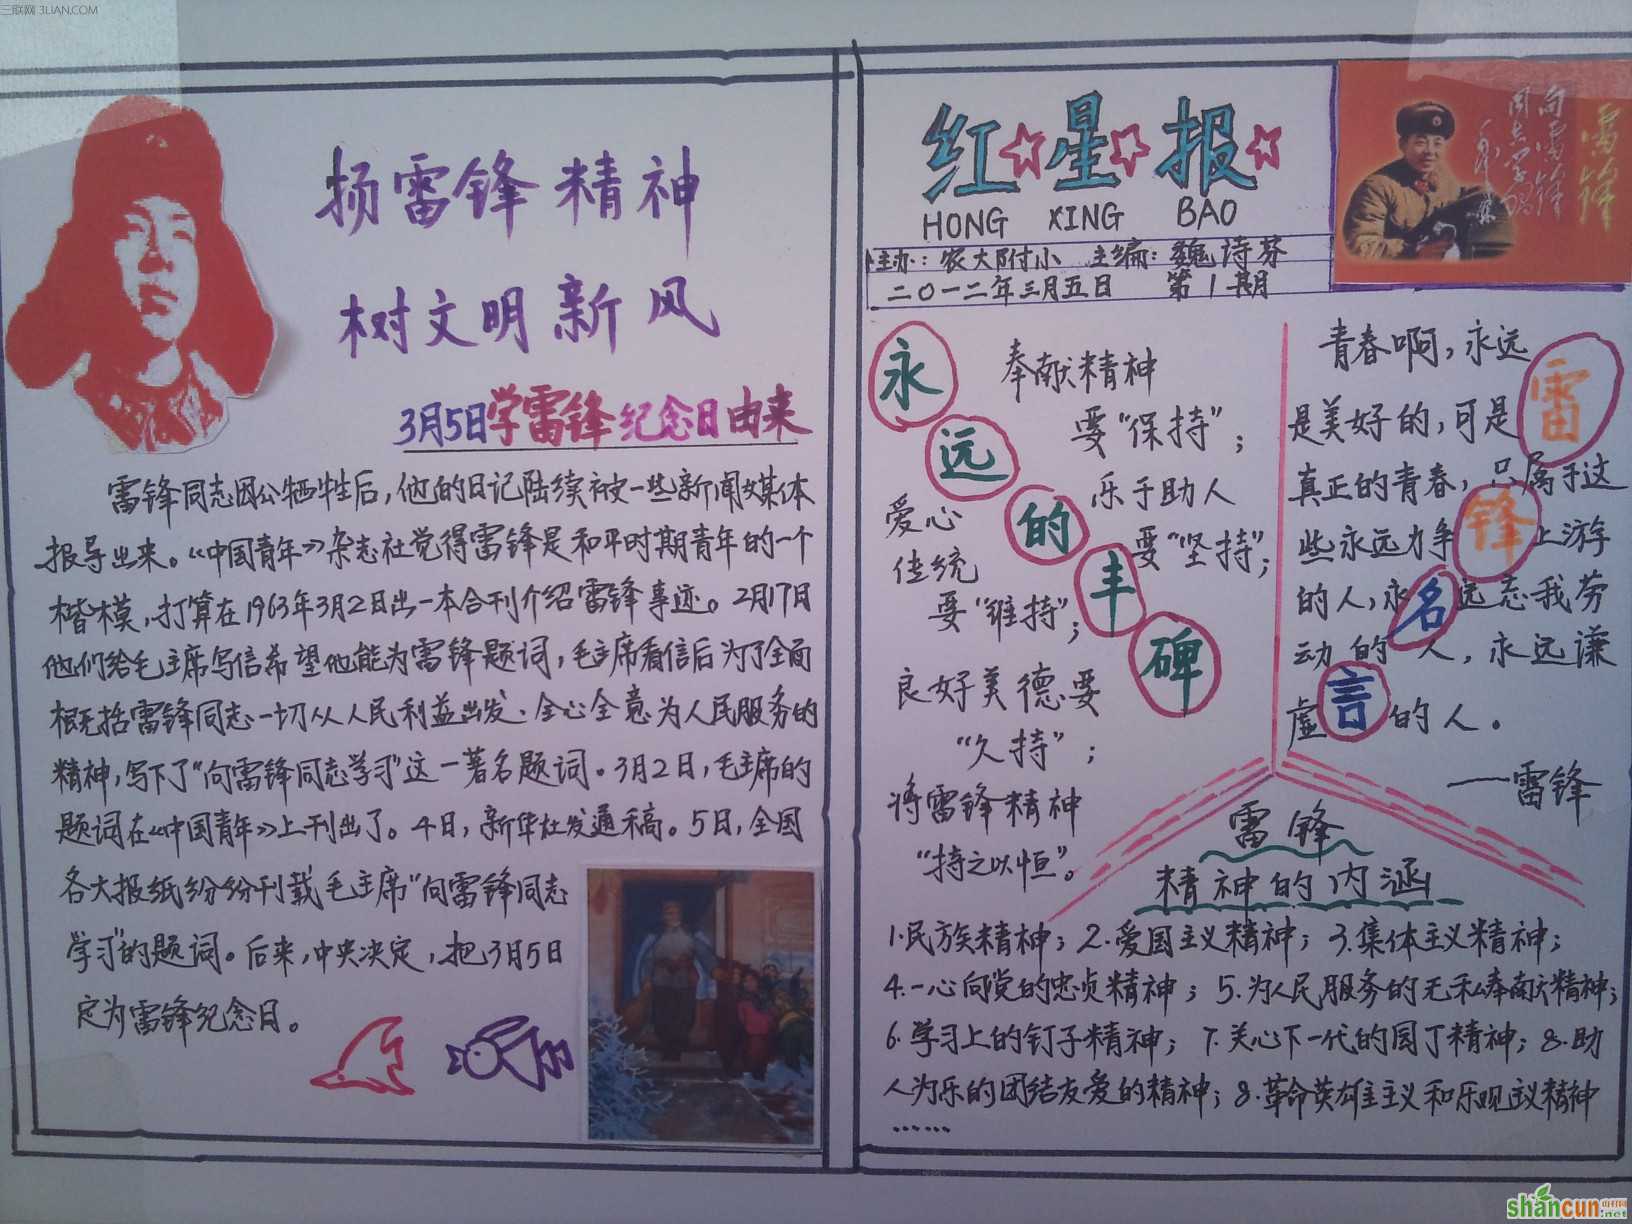 三联网 3LIAN.COM
扬雷锋精神
树文明新风
3月5日学雷锋纪念日由来
雷锋同志因公牺牲后，他的日记陆续被一些新闻媒体
报导出来。《中国青年》杂志社觉得雷锋是和平时期青年的一个
楷模，打算在1963年3月2日出一本合刊介绍雷锋事迹。2月17日
他们给毛主席写信希望他能为雷锋题词，毛主席看信后为了全面
概括雷锋同志一切从人民利益出发、全心全意为人民服务的
精神，写下了"向雷锋同志学习"这一著名题词。3月2日，毛主席的
题词在《中国青年》上刊出了。4日，新华社发通稿。5日，全国
各大报纸纷纷刊载毛主席"向雷锋同志
学习"的题词。后来，中央决定，把3月5日
定为雷锋纪念日。
红星报
HONG XING BAO
主办：农大附小 主编：魏诗芬
二〇一二年三月五日 第1期
雷锋
向雷锋
同志学习
毛泽东
永远的丰碑
奉献精神
要"保持"；
乐于助人
要"坚持"；
爱心
传统
要"维持"；
良好美德要
"久持"；
将雷锋精神
"持之以恒"。
雷锋名言
青春啊，永远
是美好的，可是
真正的青春，只属于这
些永远力争上游
的人，永远忘我劳
动的人，永远谦
虚的人。
——雷锋
雷锋
精神的内涵
1.民族精神；2.爱国主义精神；3.集体主义精神；
4.一心向党的忠贞精神；5.为人民服务的无私奉献精神；
6.学习上的钉子精神；7.关心下一代的园丁精神；8.助
人为乐的团结友爱的精神；8.革命英雄主义和乐观主义精神
……
shancun 山村网
.net